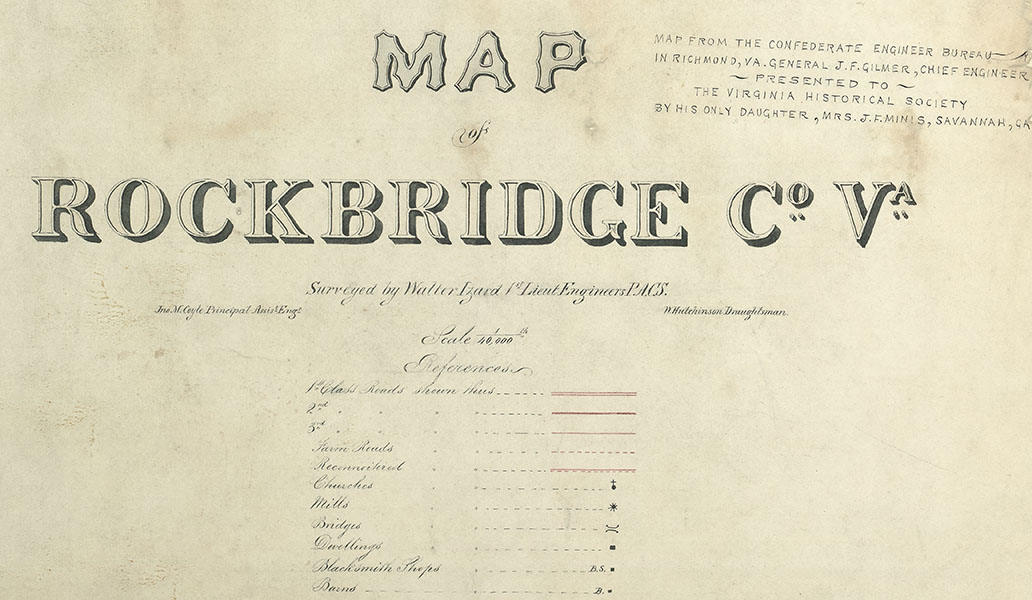 MAP
of
ROCKBRIDGE Co. Va.
MAP FROM THE CONFEDERATE ENGINEER BUREAU
IN RICHMOND, VA. GENERAL J.F. GILMER, CHIEF ENGINEER
~ PRESENTED TO ~
THE VIRGINIA HISTORICAL SOCIETY
BY HIS ONLY DAUGHTER, MRS. J.F. MINIS, SAVANNAH, GA
Surveyed by Walter Izard 1st Lieut. Engineers P.A.C.S.
Jno. M. Coyle Principal Assist. Engr.
W. Hutchinson Draughtsman.
Scale 1/40,000th
References
1st Class Roads shown thus
2nd " " "
3rd " " "
Farm Roads " "
Reconnoitered " "
Churches " "
Mills " "
Bridges " "
Dwellings " "
Blacksmith Shops " B.S.
Barns B.